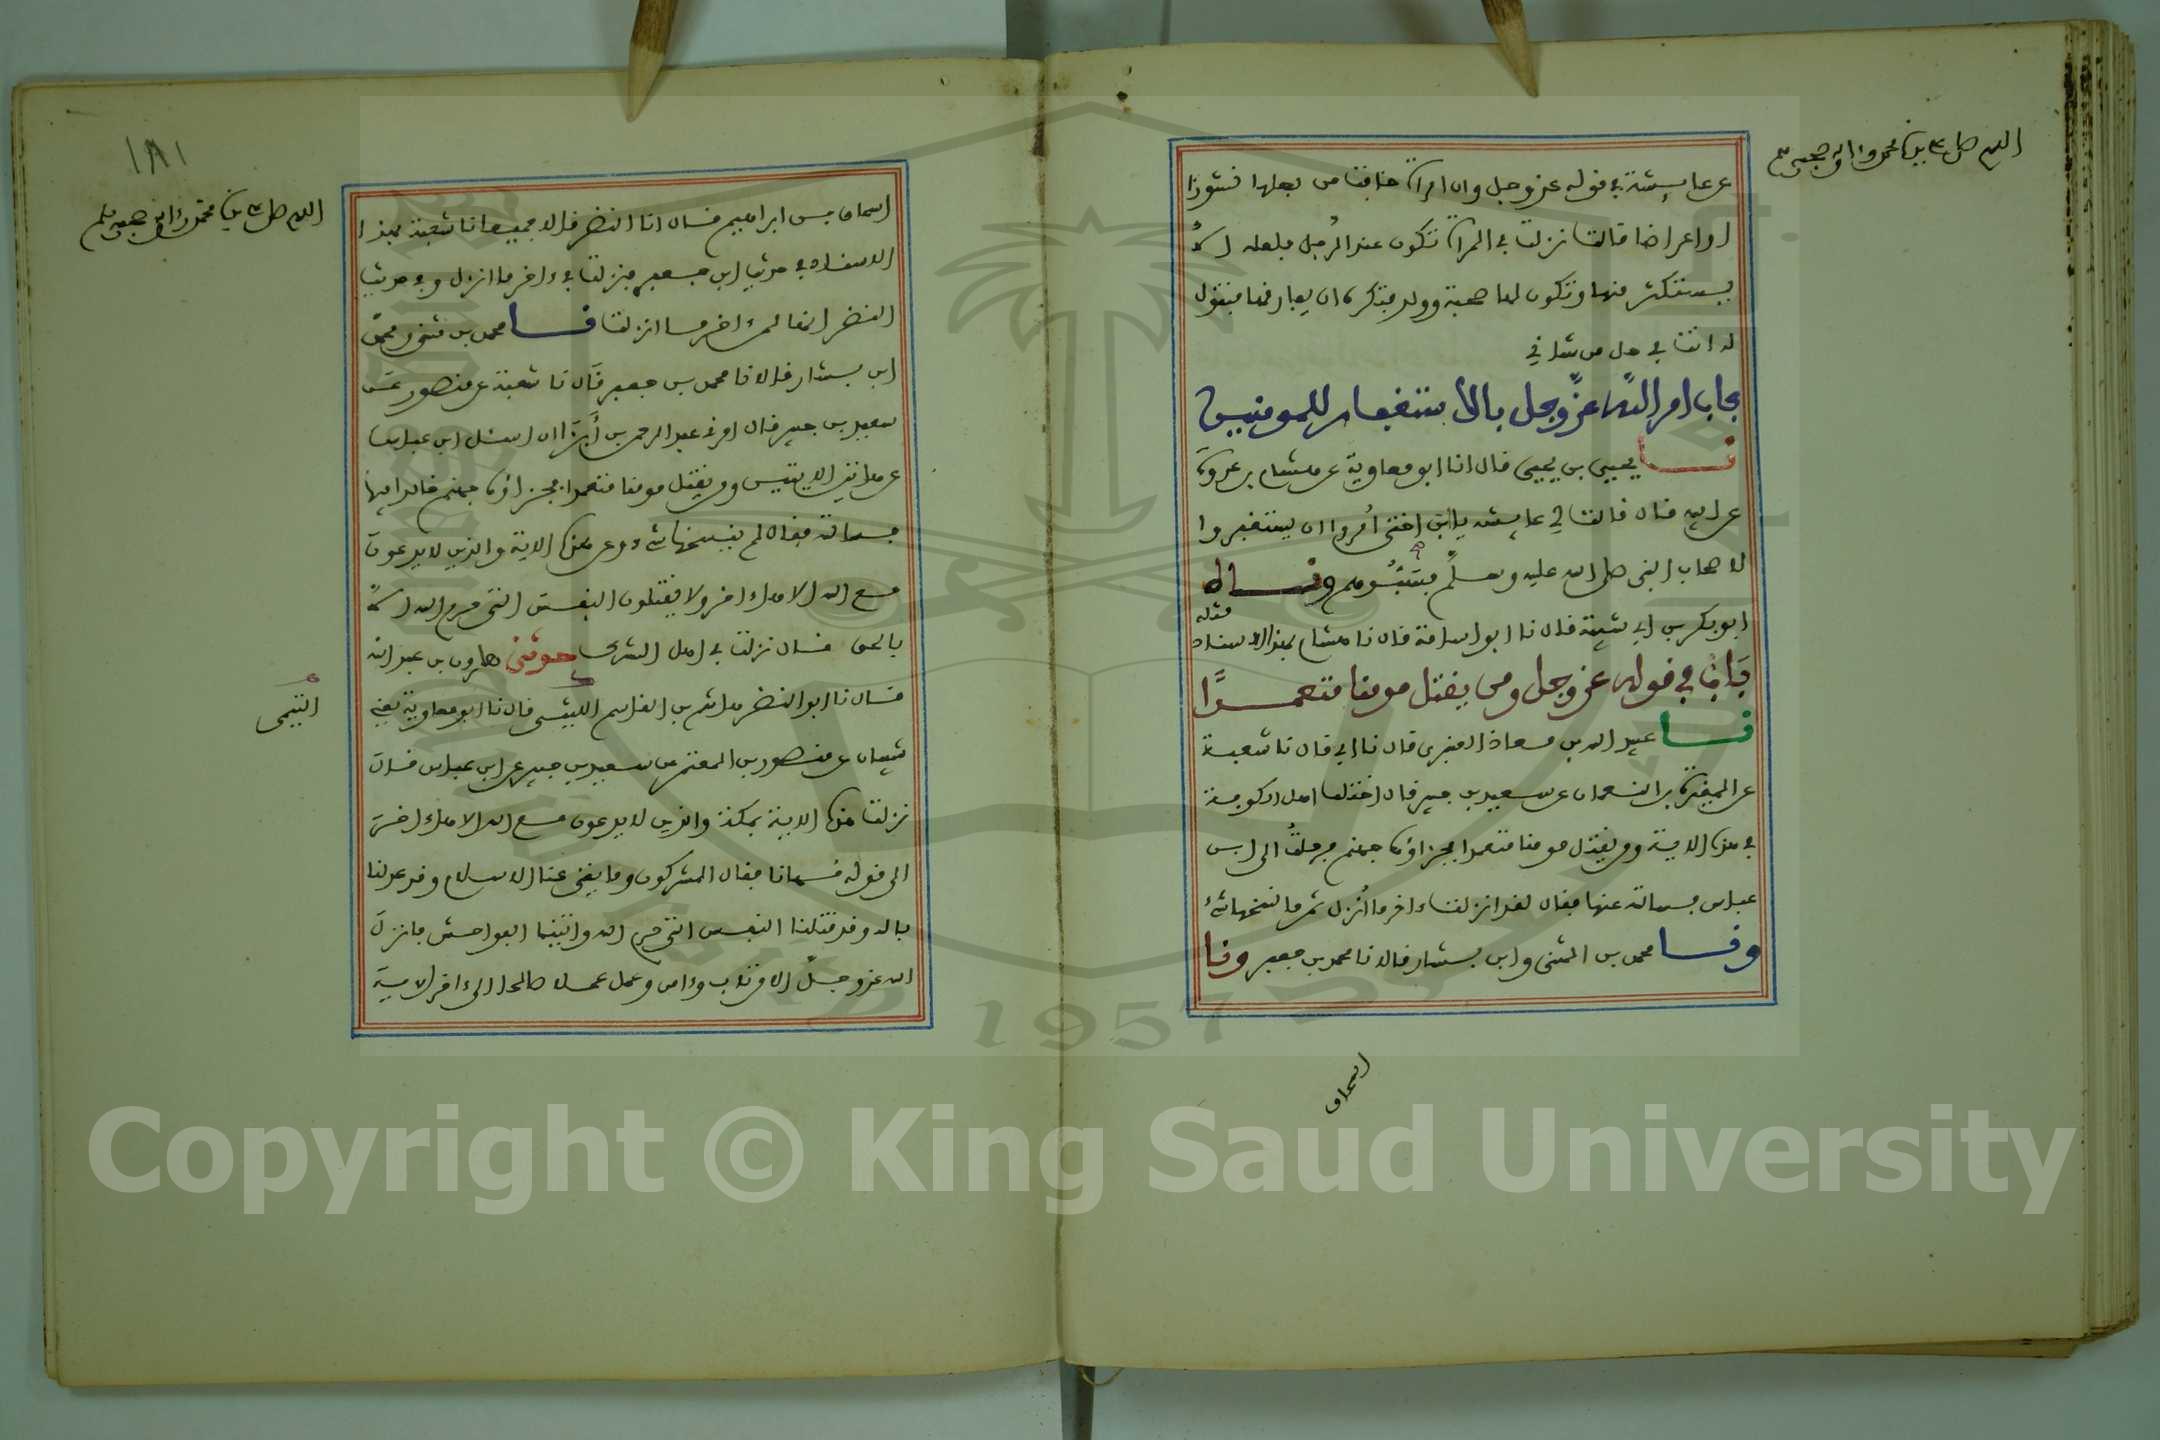 اللهم صل على سيدنا محمد وءاله وصحبه وسلم
عن عايشة في قوله عز وجل وان امراة خافت من بعلها نشوزا
او اعراضا قالت نزلت في المراة تكون عند الرجل فلعله الا
يستكثر منها وتكون لها صحبة وولد فتكره ان يفارقها فتقول
له انت في حل من شاني
باب امر الله عز وجل بالاستغفار للمومنين
نا يحيى بن يحيى قال انا ابو معاوية عن هشام بن عروة
عن ابيه قال قالت لي عايشة يابن اختي امروا ان يستغفروا
لاصحاب النبي صلى الله عليه وسلم فسبوهم وناه
ابو بكر بن ابي شيبة قال نا ابو اسامة قال نا هشام بهذا الاسناد مثله
باب في قوله عز وجل ومن يقتل مومنا متعمدا
نا عبيد الله بن معاذ العنبري قال نا ابي قال نا شعبة
عن المغيرة بن النعمان عن سعيد بن جبير قال اختلف اهل الكوفة
في هذه الاية ومن يقتل مومنا متعمدا فجزاؤه جهنم فرحلت الى ابن
عباس فسالته عنها فقال لقد انزلت ءاخر ما انزل ثم ما نسخها شيء
ونا محمد بن المثنى وابن بشار قالا نا محمد بن جعفر ونا
اسحاق
١٨١
اللهم صل على سيدنا محمد وءاله وصحبه وسلم
اسحاق بن ابراهيم قال انا النضر قالا جميعا نا شعبة بهذا
الاسناد في حديث ابن جعفر نزلت في ءاخر ما انزل وفي حديث
النضر انها لمن ءاخر ما انزلت نا محمد بن مثنى ومحمد
ابن بشار قالا نا محمد بن جعفر قال نا شعبة عن منصور عن
سعيد بن جبير قال امرني عبد الرحمن بن أبزا ان اسئل ابن عباس
عن هاتين الايتين ومن يقتل مومنا متعمدا فجزاؤه جهنم خالدا فيها
فسالته فقال لم ينسخها شيء وعن هذه الاية والذين لا يدعون
مع الله الاها ءاخر ولا يقتلون النفس التي حرم الله الا
بالحق قال نزلت في اهل الشرك حدثني هارون بن عبد الله
قال نا ابو النضر هاشم بن القاسم الليثي قال نا ابو معاوية يعني
التيمي
شيبان عن منصور بن المعتمر عن سعيد بن جبير عن ابن عباس قال
نزلت هذه الاية بمكة والذين لا يدعون مع الله الاها ءاخر
الى قوله مهانا فقال المشركون وما يغني عنا الاسلام وقد عدلنا
بالله وقد قتلنا النفس التي حرم الله واتينا الفواحش فانزل
الله عز وجل الا من تاب وءامن وعمل عملا صالحا الى ءاخر الاية
1957
Copyright © King Saud University